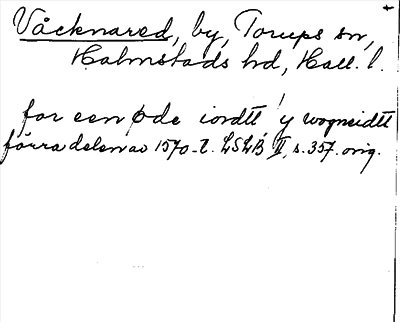 Våcknared, by, Torups sn,
Halmstads hd, Hall. l.
for een øde iordtt y wogneidtt
förra delen av 1570-t. LSLB II, s. 357. orig.